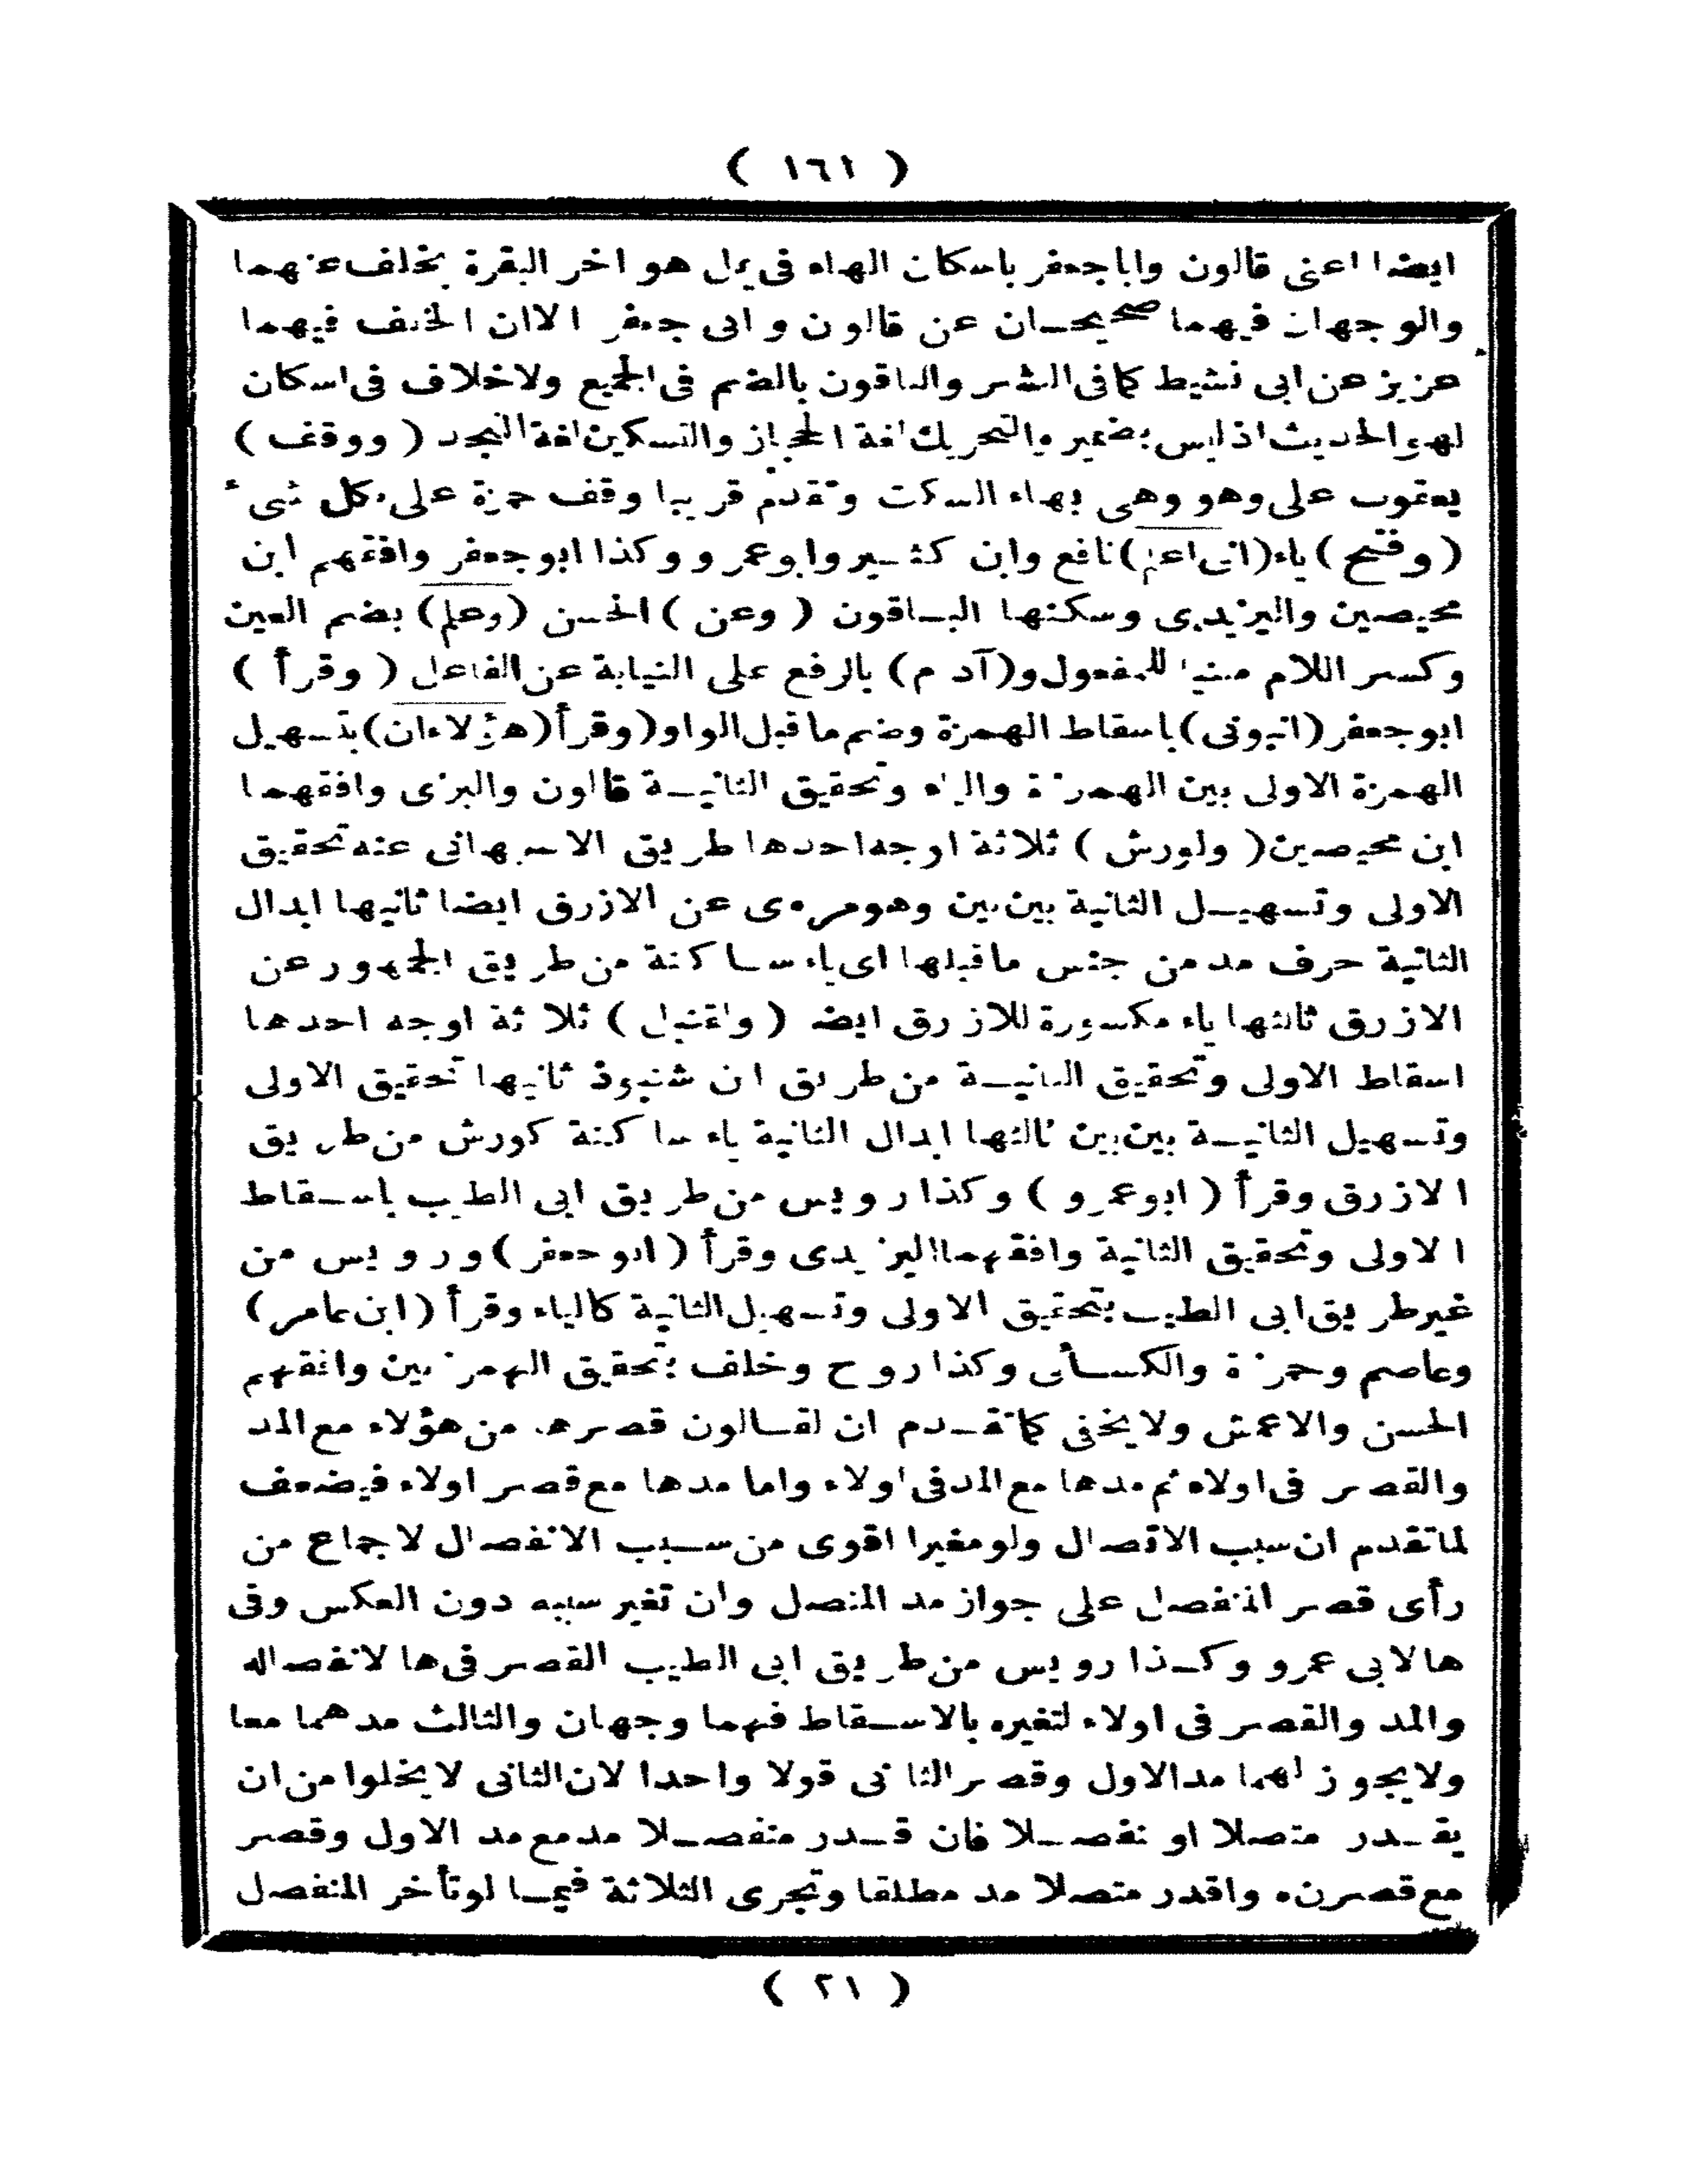 ( ١٦١ )
ايضا اعنى قالون وابا جعفر باسكان الهاء فى يمل هو اخر البقرة بخلف عنهما
والوجهان فيهما صحيحــان عن قالون وابى جعفر الا ان الخلف فيهما
عزيز عن ابى نشيط كما فى النشر والباقون بالضم فى الجميع ولا خلاف فى اسكان
لهو الحديث اذ ليس بضمير والتحريك لغة الحجاز والتسكين لغة النجد ( ووقف )
يعقوب على وهو وهى بهاء السكت وتقدم قريبا وقف حمزة على كل شىء
( وفتح ) ياء (انى اعلم) نافع وابن كثــير وابو عمرو وكذا ابو جعفر وافقهم ابن
محيصين واليزيدى وسكنها البــاقون ( وعن ) الحسن (وعلم) بضم العين
وكسر اللام مبنيا للمفعول و(آدم) بالرفع على النيابة عن الفاعل ( وقرأ )
ابو جعفر (انبونى) باسقاط الهمزة وضم ما قبل الواو (وقرأ (هؤلاء ان) بتسهيل
الهمزة الاولى بين الهمزة والياء وتحقيق الثانيــة قالون والبزى وافقهما
ابن محيصين ( ولورش ) ثلاثة اوجه احدها طريق الاصبهانى عنه تحقيق
الاولى وتسهيــل الثانية بين بين وهو مروى عن الازرق ايضا ثانيها ابدال
الثانية حرف مد من جنس ما قبلها اى ياء ساكنة من طريق الجمهور عن
الازرق ثالثها ياء مكسورة للازرق ايضا ( ولقنبل ) ثلاثة اوجه احدها
اسقاط الاولى وتحقيق الثانيــة من طريق ابن شنبوذ ثانيها تحقيق الاولى
وتسهيل الثانيــة بين بين ثالثها ابدال الثانية ياء ساكنة كورش من طريق
الازرق وقرأ ( ابو عمرو ) وكذا رويس من طريق ابى الطيب باســقاط
الاولى وتحقيق الثانية وافقهما اليزيدى وقرأ ( ابو جعفر ) ورويس من
غير طريق ابى الطيب بتحقيق الاولى وتسهيل الثانية كالياء وقرأ (ابن عامر)
وعاصم وحمزة والكســأى وكذا روح وخلف بتحقيق الهمزتين وافقهم
الحسن والاعمش ولا يخفى كما تقــدم ان لقــالون قصر ها من هؤلاء مع المد
والقصر فى اولاء ثم مدها مع المد فى اولاء واما مدها مع قصر اولاء فيضعف
لما تقدم ان سبب الاتصال ولو مغيرا اقوى من ســبب الانفصال لاجماع من
رأى قصر المنفصل على جواز مد المتصل وان تغير سببه دون العكس وفى
ها لابى عمرو وكــذا رويس من طريق ابى الطيب القصر فى ها لانفصاله
والمد والقصر فى اولاء لتغيره بالاســقاط فهما وجهان والثالث مدهما معا
ولا يجوز لهما مد الاول وقصر الثانى قولا واحدا لان الثانى لا يخلوا من ان
يقــدر متصلا او منفصــلا فان قــدر منفصــلا مد مع مد الاول وقصر
مع قصره واقدر متصلا مد مطلقا وتجرى الثلاثة فيمــا لو تأخر المنفصل
( ٢١ )